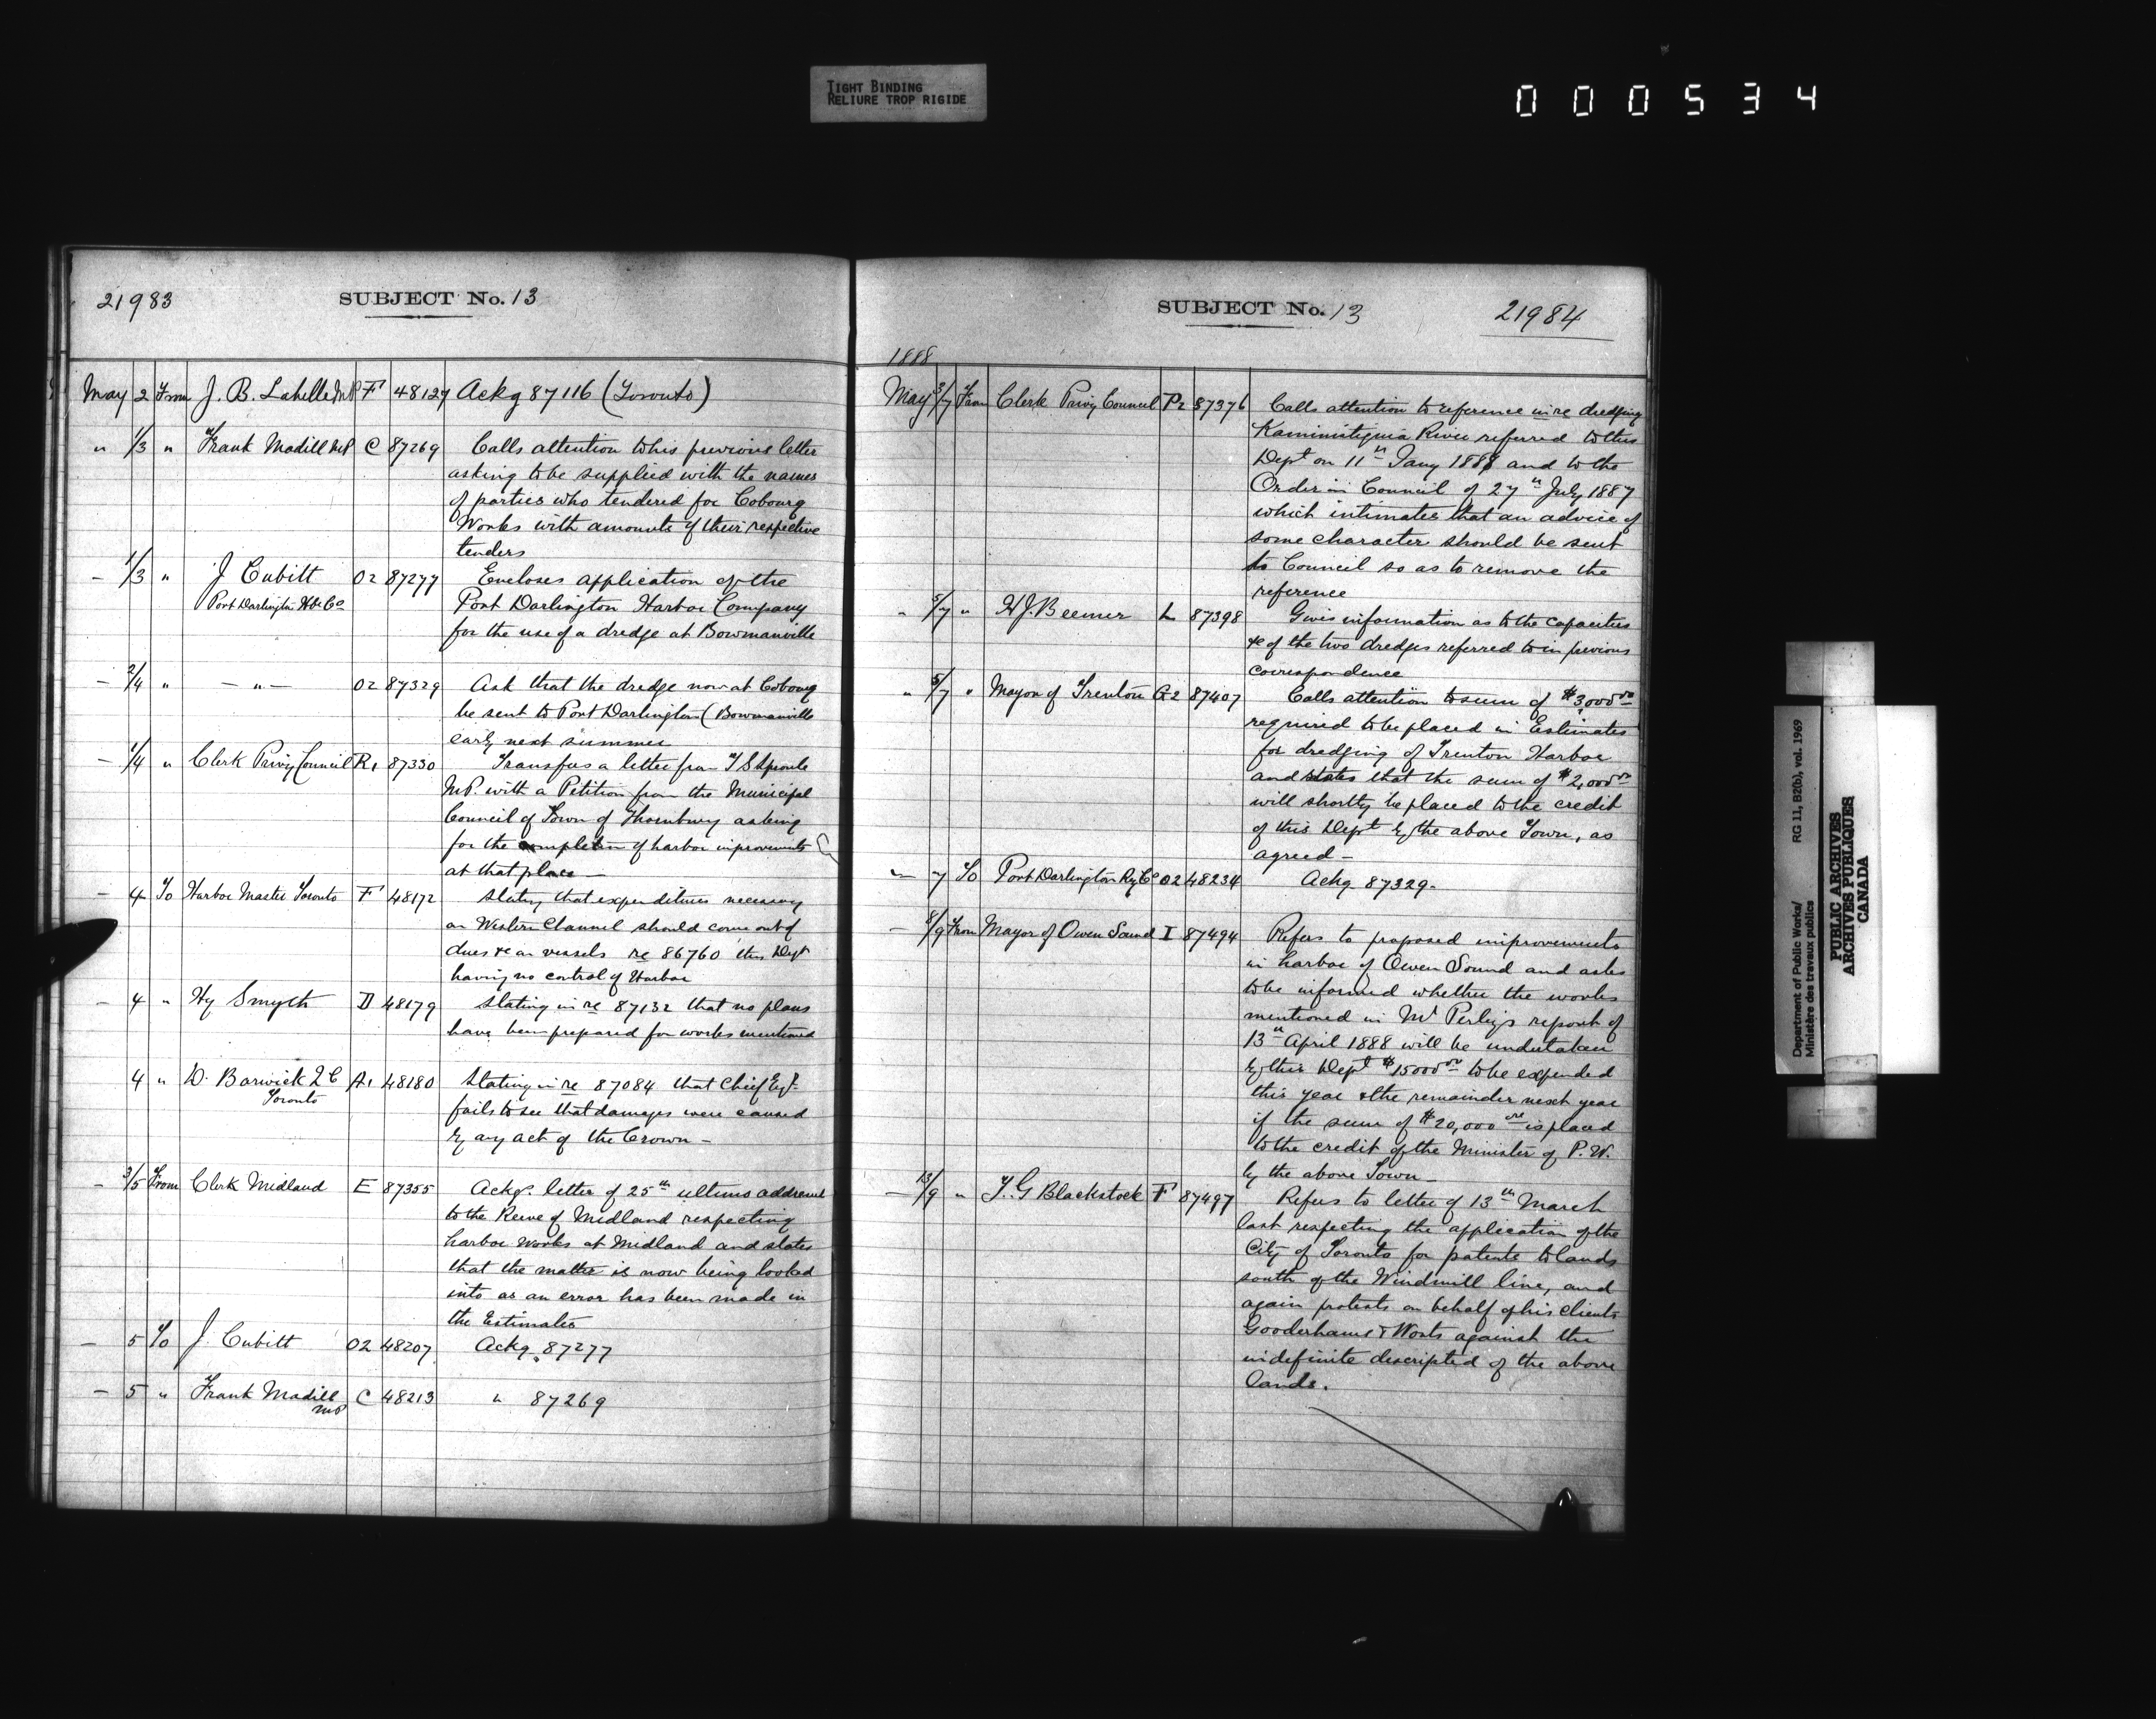 TIGHT BINDING
RELIURE TROP RIGIDE
000534
21983 SUBJECT No. 13
May 2 From J. B. Labelle MP F 48127 Ackg 87116 (Toronto)
" 1/3 " Frank Madill MP C 87269 Calls attention to his previous letter
asking to be supplied with the names
of parties who tendered for Cobourg
Works with amounts of their respective
tenders
- 1/3 " J Cubitt O2 87277 Encloses application of the
Port Darlington Hbr Co Port Darlington Harbor Company
for the use of a dredge at Bowmanville
- 2/4 " - " - O2 87329 Ask that the dredge now at Cobourg
be sent to Port Darlington (Bowmanville
early next summer
- 1/4 " Clerk Privy Council R1 87330 Transfers a letter from T S Sproule
M.P. with a Petition from the Municipal
Council of Town of Thornbury asking
for the completion of harbor improvements
at that place -
- 4 To Harbor Master Toronto F 48172 Stating that expenditures necessary
on Western Channel should come out of
dues &c on vessels re 86760 this Dept
having no control of Harbor
- 4 " Hy Smyth D 48179 Stating in re 87132 that no plans
have been prepared for works mentioned
4 " W. Barwick Q C A1 48180 Stating in re 87084 that Chief Engr
Toronto fails to see that damages were caused
by any act of the Crown -
- 3/5 From Clerk Midland E 87355 Ackg. letter of 25th ultimo addressed
to the Reeve of Midland respecting
harbor works at Midland and states
that the matter is now being looked
into as an error has been made in
the Estimates
- 5 To J. Cubitt O2 48207 Ackg. 87277
- 5 " Frank Madill C 48213 " 87269
MP
SUBJECT No. 13 21984
1888
May 3/7 From Clerk Privy Council P2 87376 Calls attention to reference in re dredging
Kaministiquia River referred to this
Dept on 11th Jany 1888 and to the
Order in Council of 27th July 1887
which intimates that an advice of
some character should be sent
to Council so as to remove the
reference
" 5/7 " H J. Beemer L 87398 Gives information as to the capacities
&c of the two dredges referred to in previous
correspondence
" 5/7 " Mayor of Trenton G2 87407 Calls attention to sum of $3,000.00
required to be placed in Estimates
for dredging of Trenton Harbor
and states that the sum of $2,000.00
will shortly be placed to the credit
of this Dept by the above Town, as
agreed -
- 7 To Port Darlington Ry Co O2 48234 Ackg 87329.
- 8/9 From Mayor of Owen Sound I 87494 Refers to proposed improvements
in harbor of Owen Sound and asks
to be informed whether the works
mentioned in Mr Perley's report of
13th April 1888 will be undertaken
by this Dept $15000.00 to be expended
this year & the remainder next year
if the sum of $20,000.00 is placed
to the credit of the Minister of P. W.
by the above Town -
- 13/9 " T. G Blackstock F 87497 Refers to letter of 13th March
last respecting the application of the
City of Toronto for patents to lands
south of the Windmill line, and
again protests on behalf of his clients
Gooderhams & Worts against the
indefinite descripted of the above
lands.
Department of Public Works/
Ministère des travaux publics
RG 11, B2(b), vol. 1969
PUBLIC ARCHIVES
ARCHIVES PUBLIQUES
CANADA